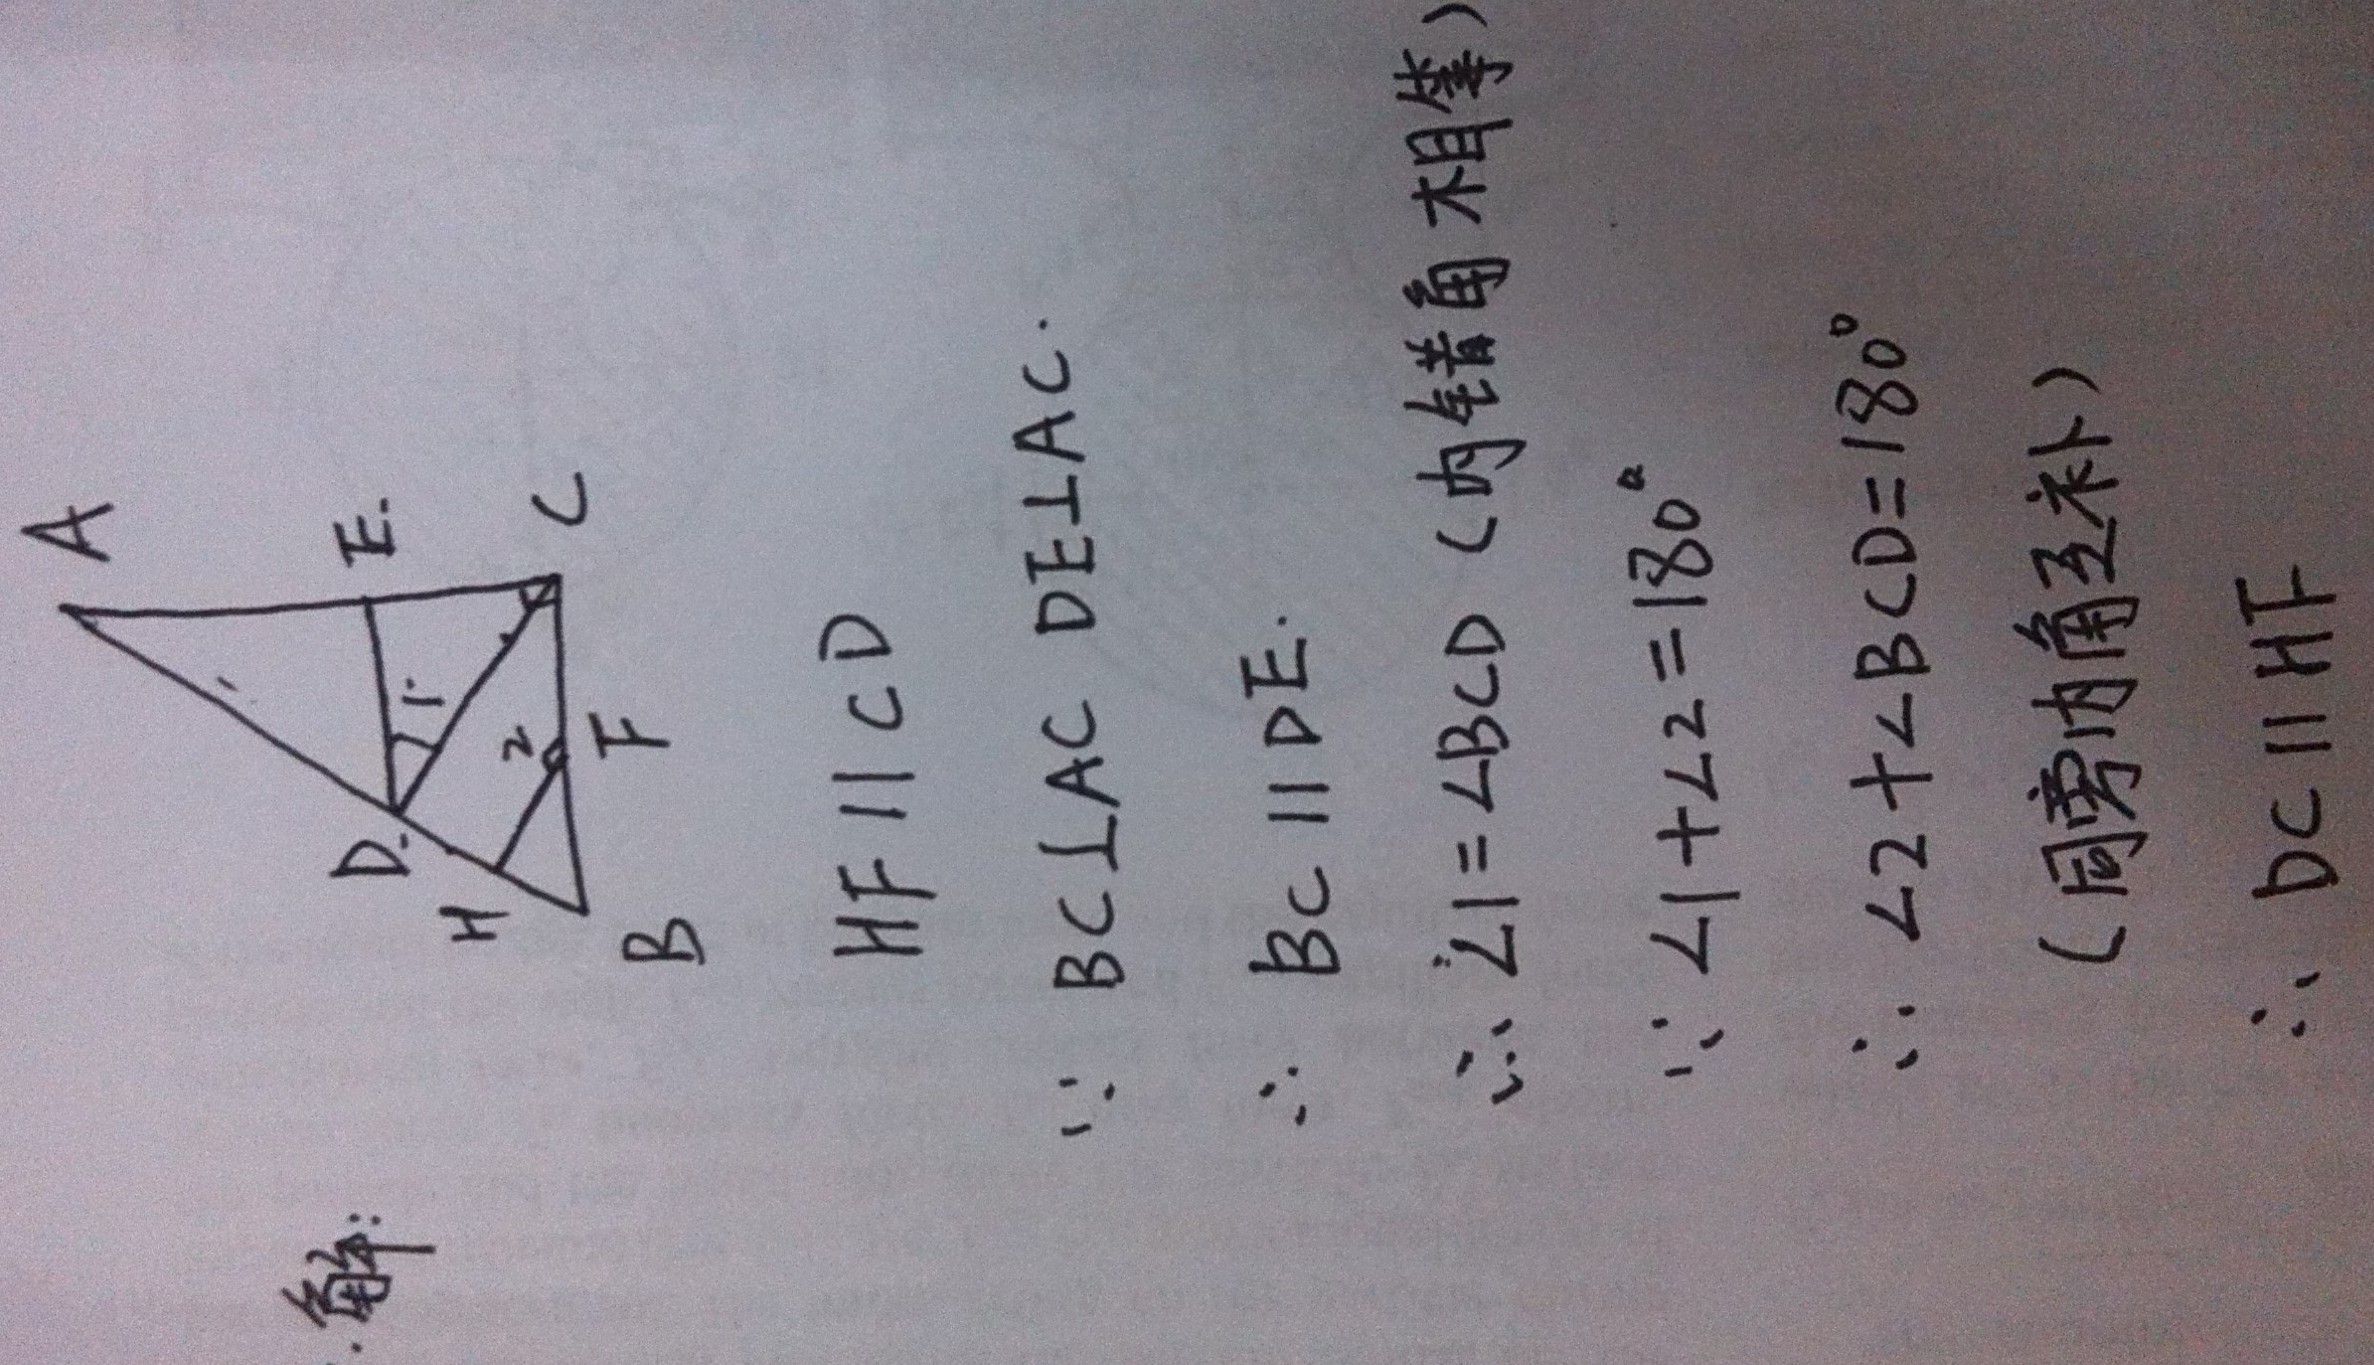 解:
A
E.
D.
1
C
H
2
F
B
HF∥CD
∵ BC⊥AC DE⊥AC.
∴ BC∥DE.
∴ ∠1=∠BCD (内错角相等)
∵ ∠1+∠2=180°
∴ ∠2+∠BCD=180°
(同旁内角互补)
∴ DC∥HF